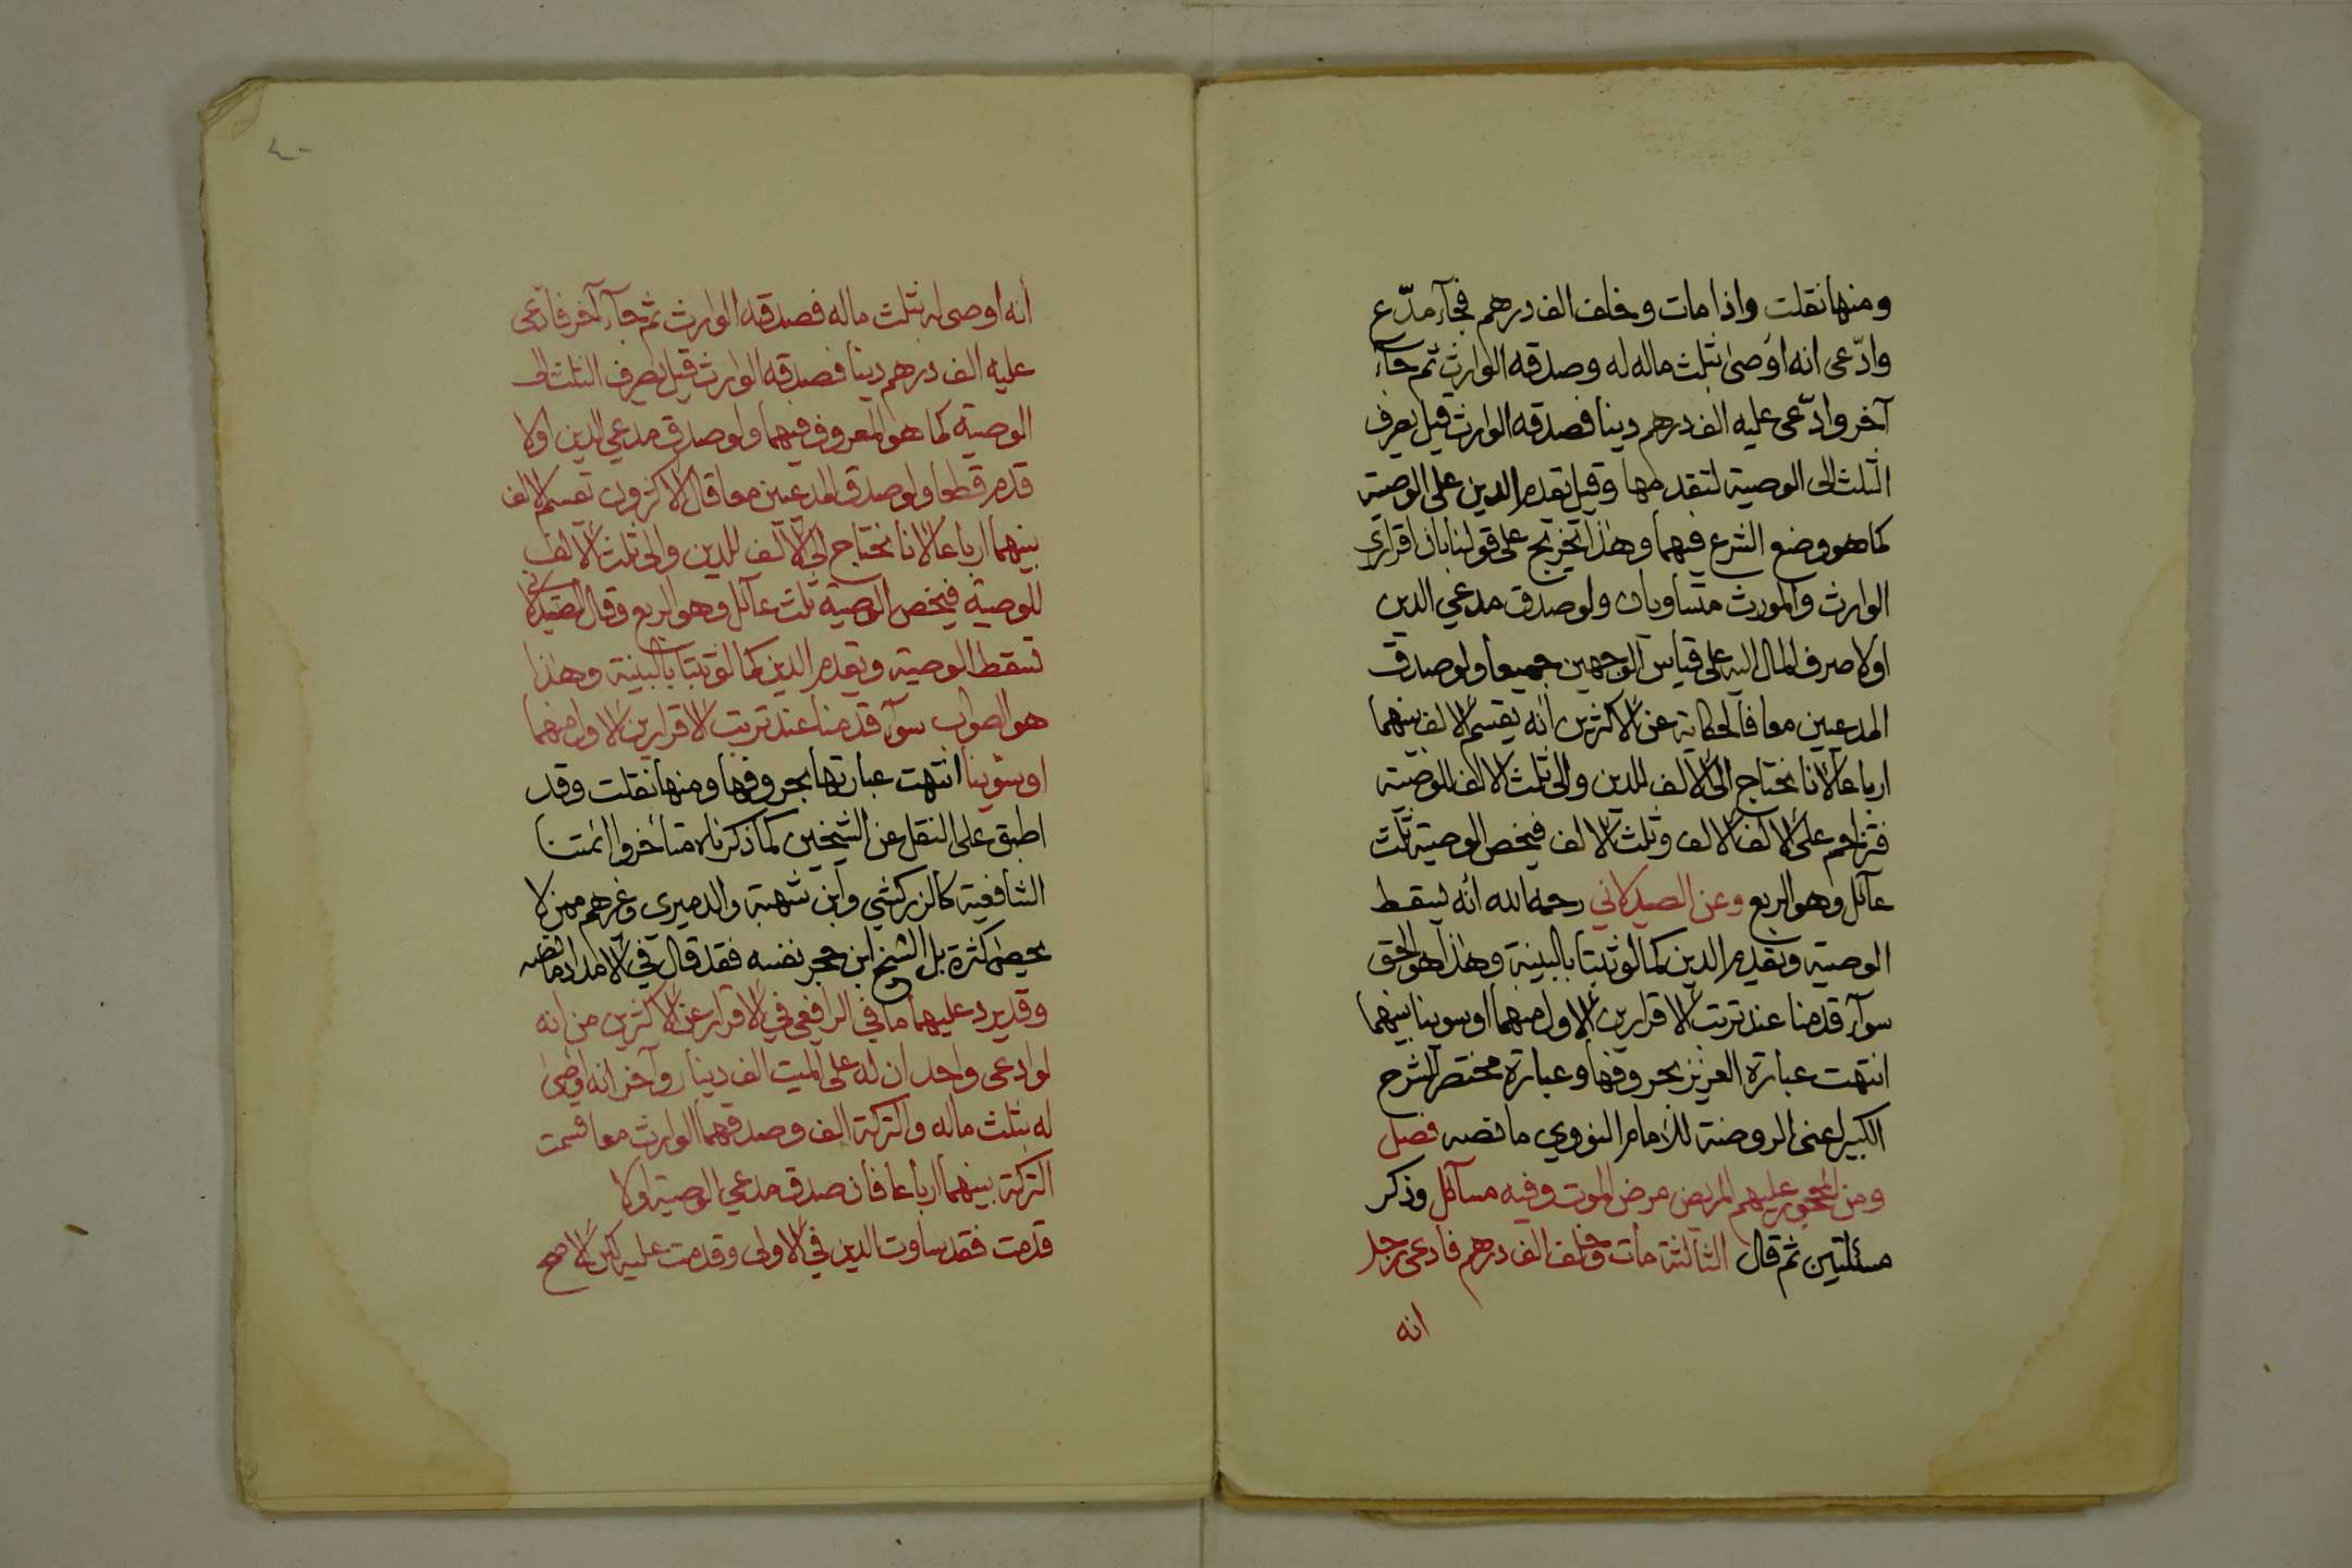 ومنها نقلت واذا مات وخلف الف درهم فجآء مدّع
وادّعى انه اوصى بثلث ماله له وصدقه الوارث ثم جآء
آخر وادّعى عليه الف درهم دينا فصدقه الوارث قيل يصرف
الثلث الى الوصية لتقدمها وقيل يقدم الدين على الوصية
كما هو وضع الشرع فيهما وهذا تخريج على قولنا بان اقراري
الوارث والمورث متساويان ولو صدق مدعي الدين
اولا صرف المال اليه على قياس الوجهين جميعا ولو صدق
المدعيين معا فالحكاية عن الاكثرين انه يقسم الالف بينهما
ارباعا لانا نحتاج الى الالف للدين والى ثلث الالف للوصية
فتزاحم على الالف الالف وثلث الالف فيخص الوصية ثلث
عائل وهو الربع وعن الصيدلاني رحمه الله انه تسقط
الوصية ويقدم الدين كما لو ثبتا بالبينة وهذا هو الحق
سوآء قدمنا عند ترتب الاقرارين الاول منهما او سوينا بينهما
انتهت عبارة العزيز بحروفها وعبارة مختصر الشرح
الكبير اعنى الروضة للامام النووي ما نصه فصل
ومن المحجور عليهم المريض مرض الموت وفيه مسآئل وذكر
مسئلتين ثم قال الثالثة مات وخلف الف درهم فادعى رجل
انه
٤٠
أنه اوصى له بثلث ماله فصدقه الوارث ثم جآء آخر فادّعى
عليه الف درهم دينا فصدقه الوارث قيل يصرف الثلث الى
الوصية كما هو المعروف فيهما ولو صدق مدعي الدين اولا
قدم قطعا ولو صدق المدعيين معا قال الاكثرون تقسم الالف
بينهما ارباعا لانا نحتاج الى الالف للدين والى ثلث الالف
للوصية فيخص الوصية ثلث عآئل وهو الربع وقال الصيدلاني
تسقط الوصية ويقدم الدين كما لو ثبتا بالبينة وهذا
هو الصواب سوآء قدمنا عند ترتب الاقرارين الاول منهما
او سوّينا انتهت عبارتها بحروفها ومنها نقلت وقد
اطبق على النقل عن الشيخين كما ذكرناه متأخروا ائمتنا
الشافعية كالزركشي وابن شهبة والدميري وغيرهم ممن لا
يحصى كثرة بل الشيخ ابن حجر نفسه فقد قال في الامداد ما نصه
وقد يرد عليهما ما في الرافعي في الاقرار عن الاكثرين من انه
لو ادعى واحد ان له على الميت الف دينار وآخر انه اوصى
له بثلث ماله والتركة الف وصدقهما الوارث معا قسمت
التركة بينهما ارباعا فان صدق مدعي الوصية اولا
قدمت فقد ساوت الدين في الاولى وقدمت عليه لكن الاصح